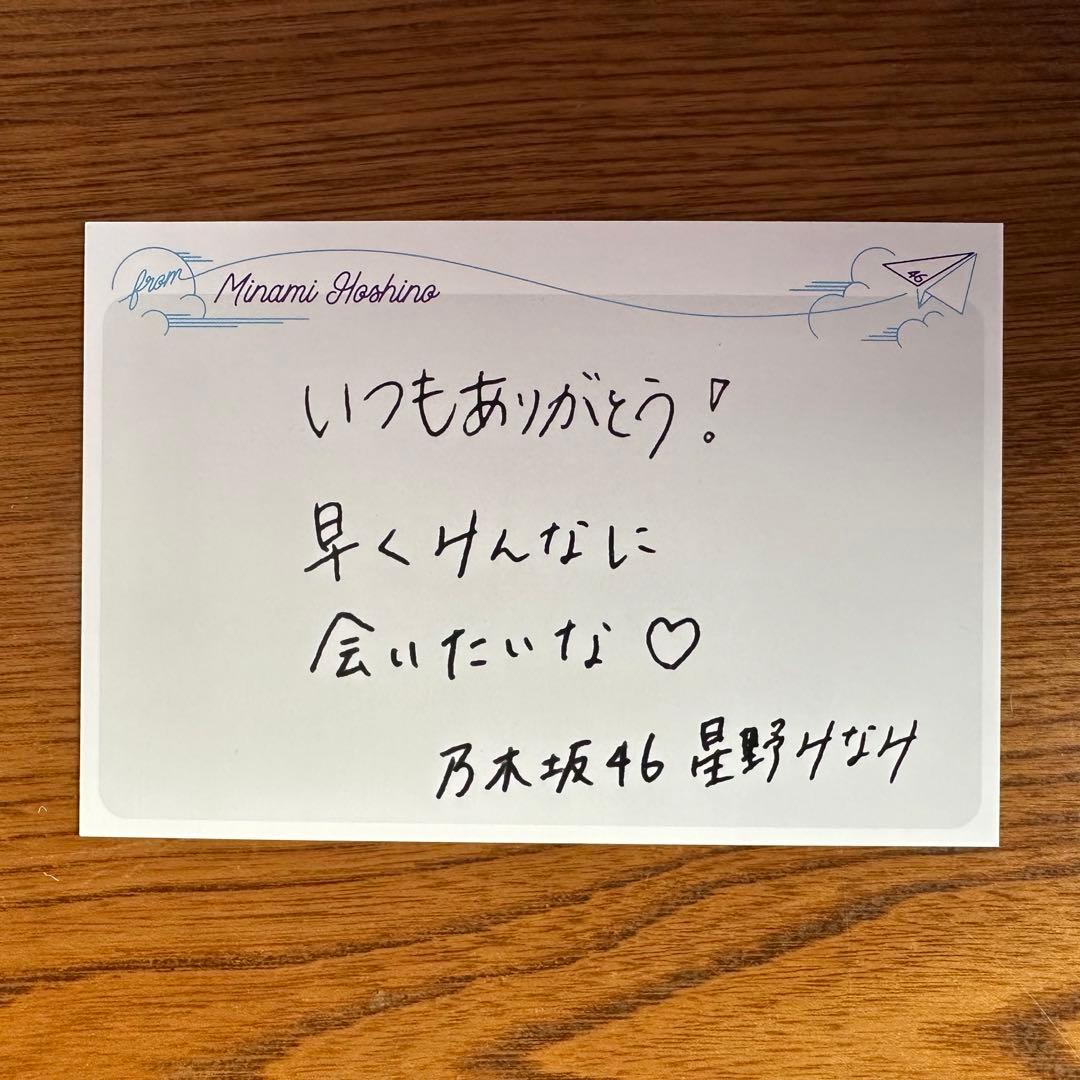 from Minami Hoshino
46
いつもありがとう！
早くみんなに
会いたいな♡
乃木坂46 星野みなみ